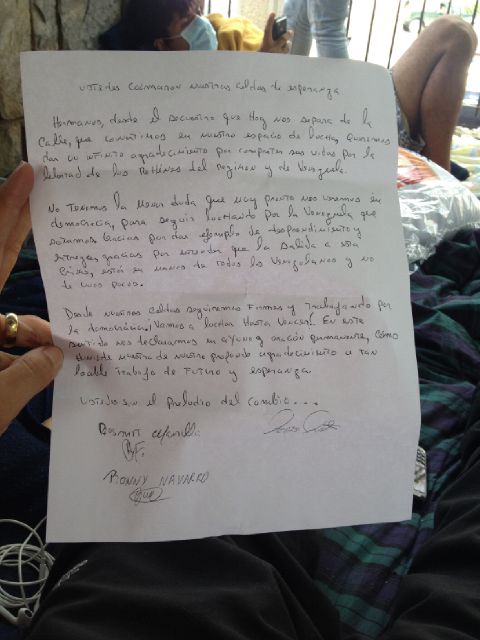 Ustedes colmaron nuestras celdas de esperanza
Hermanos, desde el secuestro que Hoy nos separa de la
calle, que convertimos en nuestro espacio de lucha, queremos
dar un infinito agradecimiento por compartir sus vidas por la
libertad de los Rehenes del Regimen y de Venezuela.
No Tenemos la Menor duda que muy pronto nos veremos en
democracia, para seguir luchando por la Venezuela que
soñamos. Gracias por dar ejemplo de desprendimiento y
entrega, gracias por entender que la salida a esta
Crisis, está en manos de todos los Venezolanos y no
de unos pocos.
Desde nuestras celdas seguiremos Firmes y Trabajando por
la democracia. ¡Vamos a luchar Hasta Vencer! En este
sentido nos declaramos en ayuno y oración permanente, como
muestra de nuestro profundo agradecimiento a tan
loable Trabajo de Futuro y esperanza.
Ustedes son el preludio del cambio...
Rosmit
RONNY NAVARRO